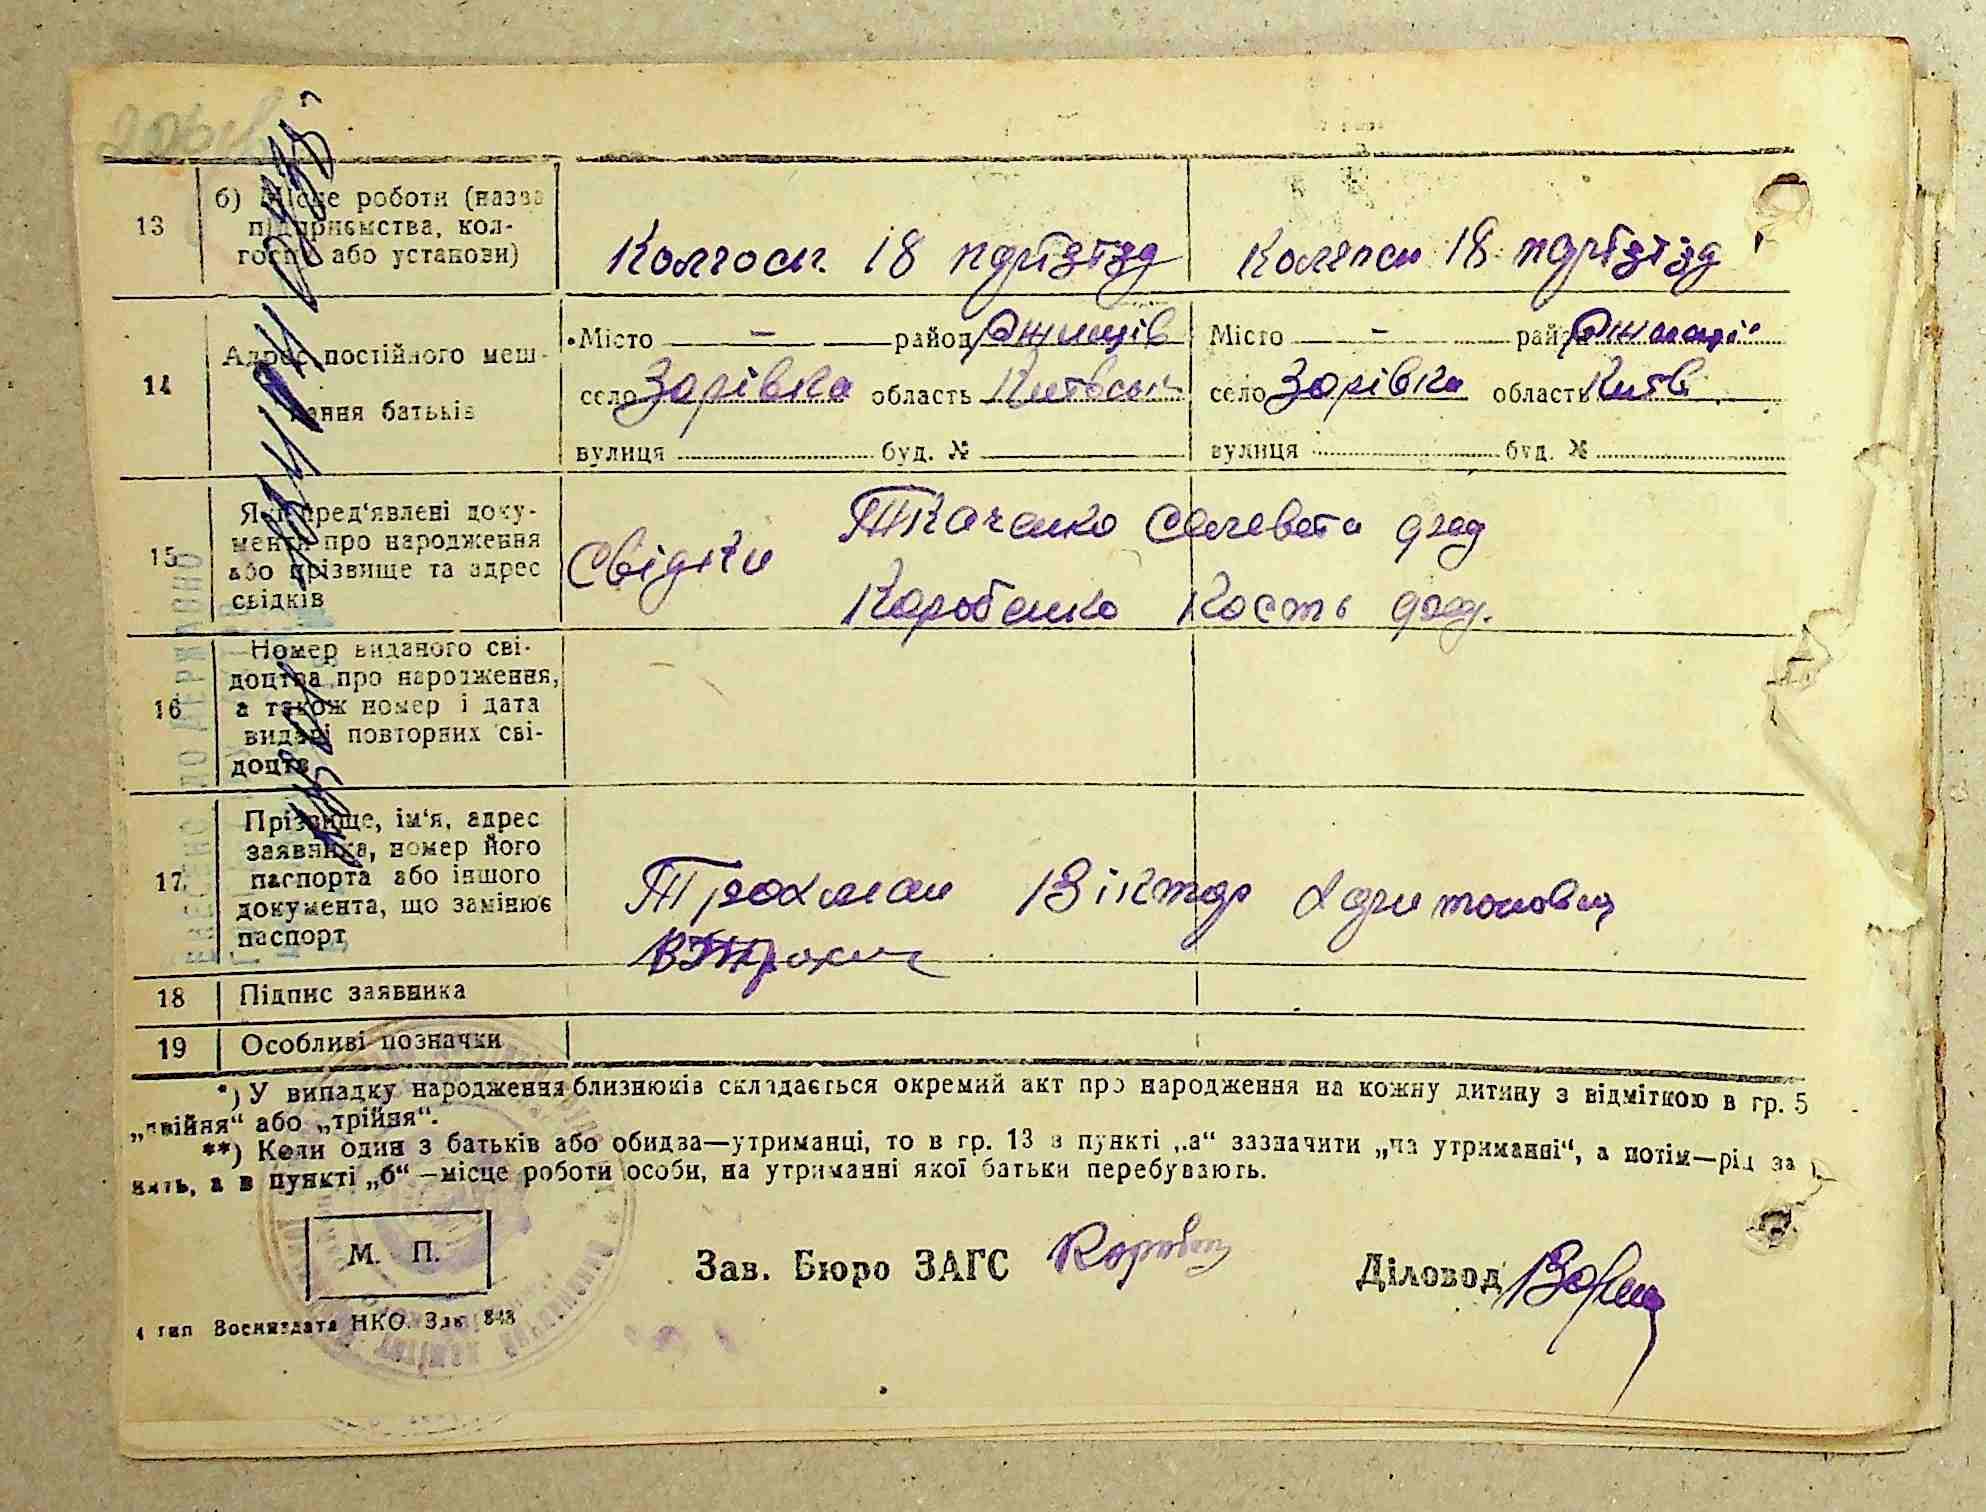 13
б) Місце роботи (назва
підприємства, кол-
госп або установи)
Колгосп. 18 партзїзд
Колгосп 18 партзїзд
14
Адрес постійного меш-
кання батьків
Місто — район Ржищів
село Зорівка область Київськ
вулиця буд. №
Місто - район Ржищів
село Зорівка область Київ
вулиця буд. №
15
Які пред'явлені доку-
менти про народження
або прізвище та адрес
свідків
Свідки
Ткаченко Селевета
Коробенко Кость
16
Номер виданого сві-
доцтва про народження,
а також номер і дата
видачі повторних сві-
доцтв
17
Прізвище, ім'я, адрес
заявника, номер його
паспорта або іншого
документа, що замінює
паспорт
Трохман Віктор Харитонович
18
Підпис заявника
19
Особливі позначки
*) У випадку народження близнюків складається окремий акт про народження на кожну дитину з відміткою в гр. 5
„двійня“ або „трійня“.
**) Коли один з батьків або обидва—утриманці, то в гр. 13 в пункті „а“ зазначити „на утриманні“, а потім—рід за
нять, а в пункті „б“—місце роботи особи, на утриманні якої батьки перебувають.
М. П.
Зав. Бюро ЗАГС
Діловод
4 тип Воениздата НКО. Зак. 848